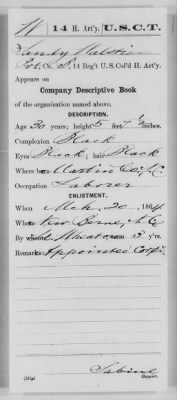 H 14 H. Art'y. U.S.C.T.
Pvt., Co. B, 14 Reg't U.S. Col'd H. Art'y.
Appears on
Company Descriptive Book
of the organization named above.
DESCRIPTION.
Age 30 years; height 5 feet 7 1/2 inches.
Complexion Black
Eyes Black; hair Black
Where born Martin Co., N.C.
Occupation Laborer
ENLISTMENT.
When Mch. 20, 1864
Where New Berne, N.C.
By Wheaton; term 3 y'rs.
Remarks: Appointed Corp'l
Sabine
Copyist.